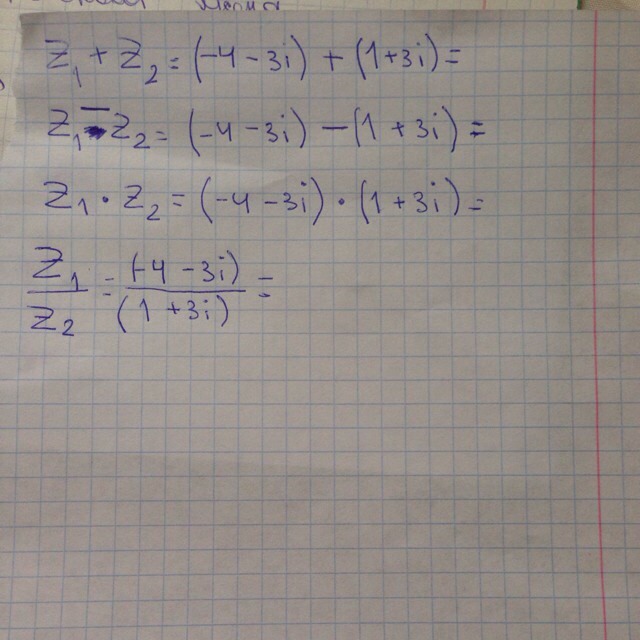 Z₁ + Z₂ = (-4 - 3i) + (1 + 3i) =
Z₁ - Z₂ = (-4 - 3i) - (1 + 3i) =
Z₁ · Z₂ = (-4 - 3i) · (1 + 3i) =
Z₁/Z₂ = (-4 - 3i)/(1 + 3i) =